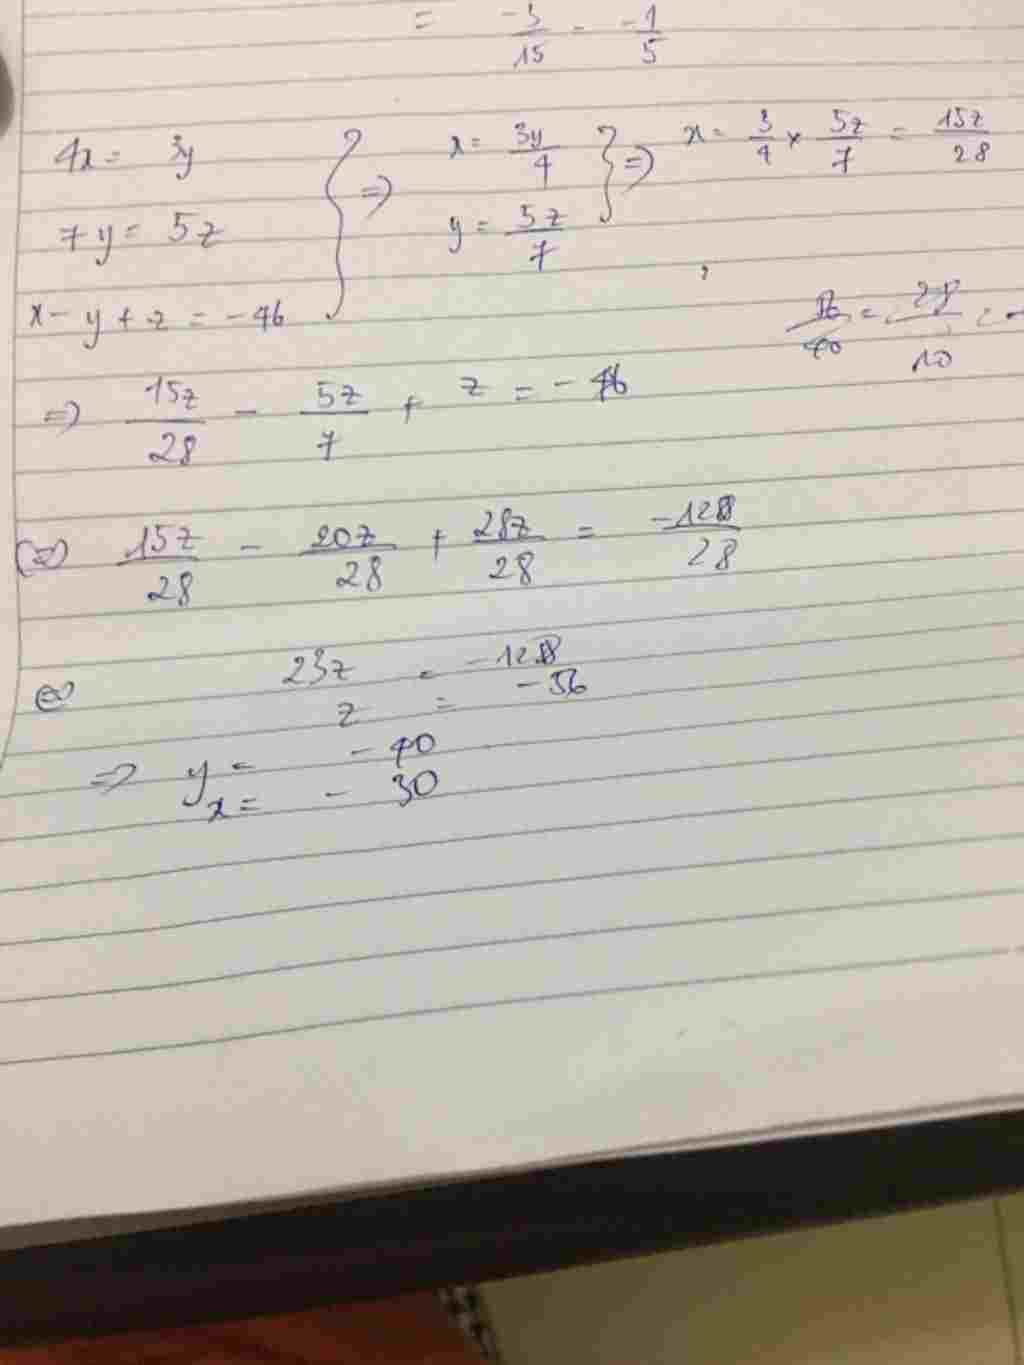 = -3/15 = -1/5
4x = 3y
7y = 5z
x - y + z = -46
} => x = 3y/4
y = 5z/7
} => x = 3/4 × 5z/7 = 15z/28
=> 15z/28 - 5z/7 + z = -46
<=> 15z/28 - 20z/28 + 28z/28 = -1288/28
<=> 23z = -1288
z = -56
=> y = -40
x = -30